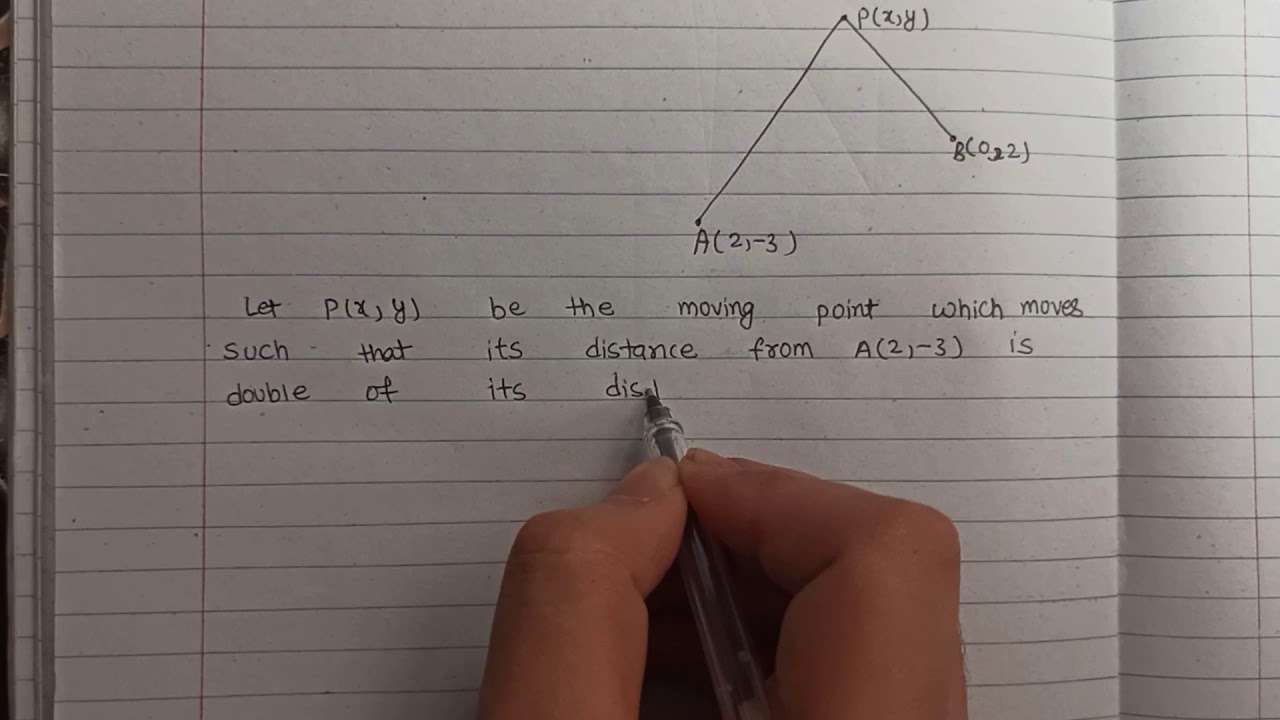 P(x,y)
B(0,2)
A(2,-3)
Let P(x, y) be the moving point which moves
such that its distance from A(2,-3) is
double of its